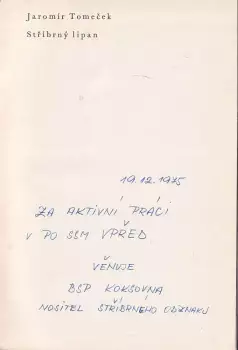 Jaromír Tomeček
Stříbrný lipan
19.12.1975
ZA AKTIVNÍ PRÁCI
V PO SSM VPŘED
VĚNUJE
BSP KOKSOVNA
NOSITEL STŘÍBRNÉHO ODZNAKU